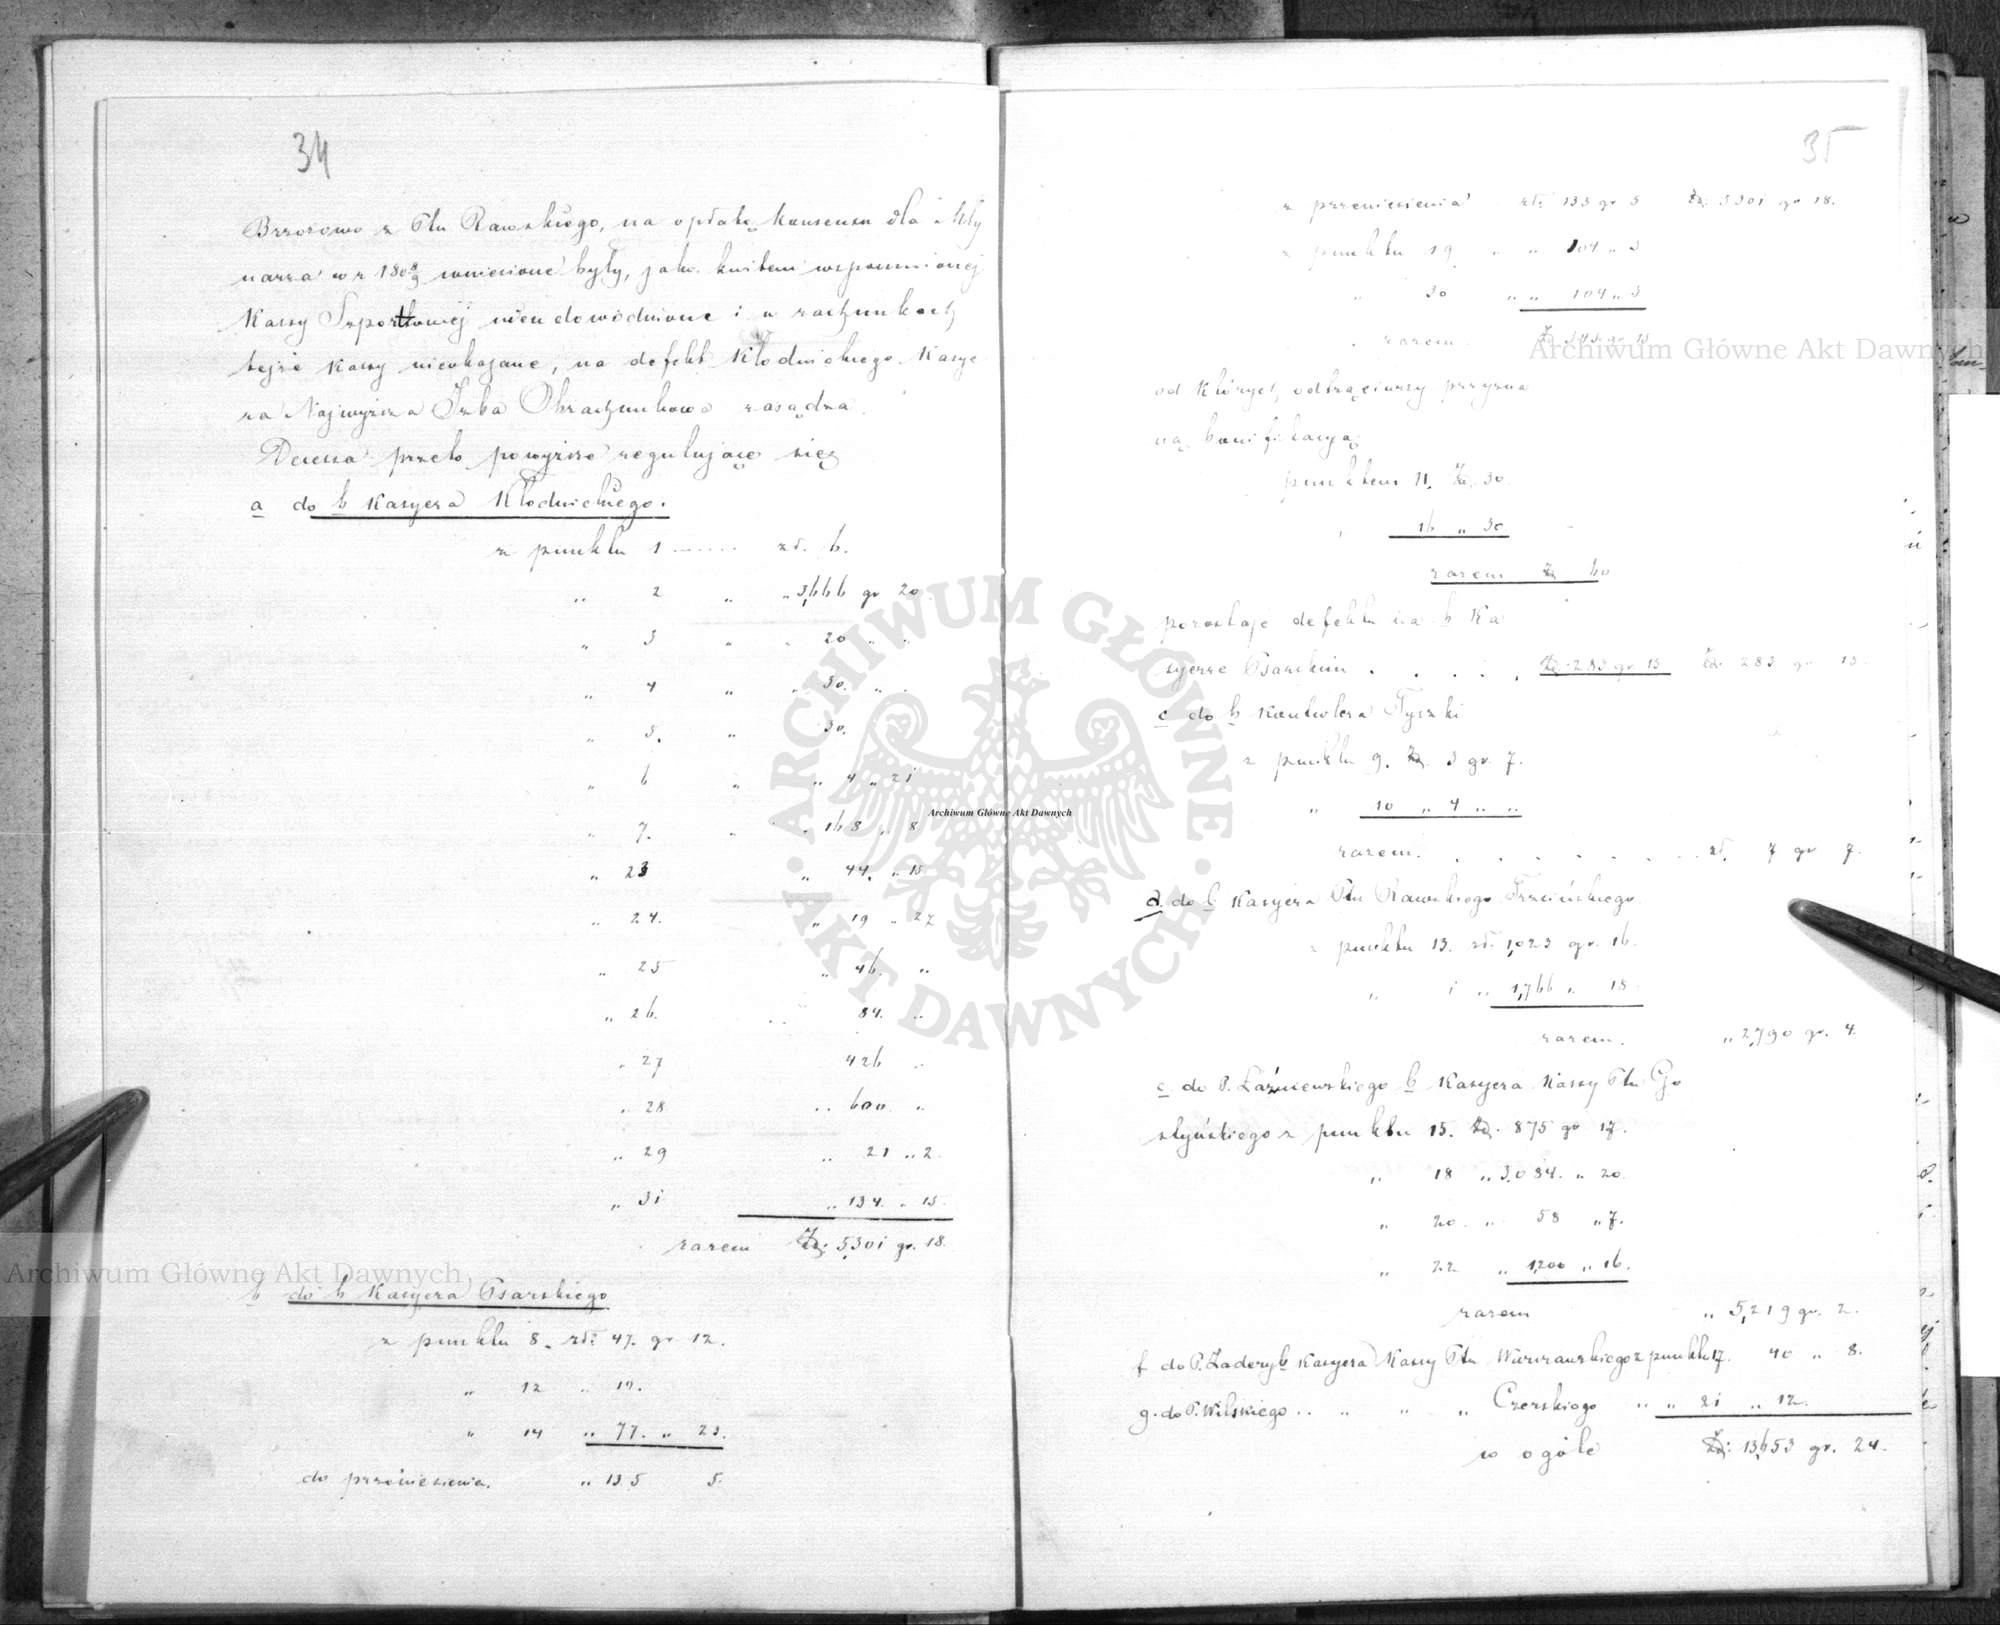 34
Brzozowo z Ptu Rawskiego, na opłatę konsensu dla Mły
narza w r 180 8/9 wniesione były, jako kwitem wspomnionej
Kassy Szportlowej nieudowodnione i w rachunkach
tejże kassy nieokazane, na defekt Kłodnickiego Kasye
ra Najwyższa Izba Obrachunkowa zasądza.
Decessa przeto powyższe regulujące się
a do b Kasyera Kłodnickiego.
z punktu 1 ...... zł. 6.
" 2 " " 3,666 gr 20
" 3 " " 20 " "
" 4 " " 30. " "
" 5. " 30.
" 6 " " 4 " 21
" 7. " " 168 " 8
" 23 " 44. " 15
" 24. " 19 " 27
" 25 " 46. "
" 26. " 84. "
" 27 426 "
" 28 " 600 "
" 29 " 21 " 2.
" 31 " 134. " 15.
razem Zł: 5,301 gr. 18.
b do b Kasyera Psarskiego
z punktu 8. zł: 47. gr 12.
" 12 " 10.
" 14 " 77. " 23.
do przeniesienia. " 135 5.
35
z przeniesienia zł: 135 gr 5 Zł: 5301 gr 18.
z punktu 19 " " 104 " 5
" 30 " " 104 " 5
razem Zł 343 gr 15
od których odtrąciwszy przyzna
ną bonifikacyą
punktem 11. Zł. 30.
" 16 " 30.
razem Zł 60
pozostaje defektu na b Ka
syerze Psarskim . . . . . Zł: 283 gr 15 Zł: 283 gr 15.
c do b Kontrolera Tyszki
z punktu 9. Zł. 3 gr. 7.
" 10 " 4 " "
razem. . . . . . . . zł. 7 gr 7.
d. do b Kasyera Ptu Rawskiego Trzcińskiego
z punktu 13. zł. 1,023 gr. 16.
" i " 1,766 " 18.
razem. " 2,790 gr. 4.
e do P. Łaźniewskiego b Kasyera Kassy Ptu Go
styńskiego z punktu 15. Zł. 875 gr 17.
" 18 " 3,084. " 20.
" 20. " 58 " 7.
" 22 " 1,200 " 16.
razem " 5,219 gr. 2.
f do P. Zadery b Kasyera Kassy Ptu Warszawskiego z punktu 17. 40 " 8.
g. do P. Wilskiego " " " " Czerskiego " " 21 " 12.
w ogóle Zł: 13,653 gr. 24.
Archiwum Główne Akt Dawnych
Archiwum Główne Akt Dawnych
Archiwum Główne Akt Dawnych
ARCHIWUM GŁÓWNE AKT DAWNYCH